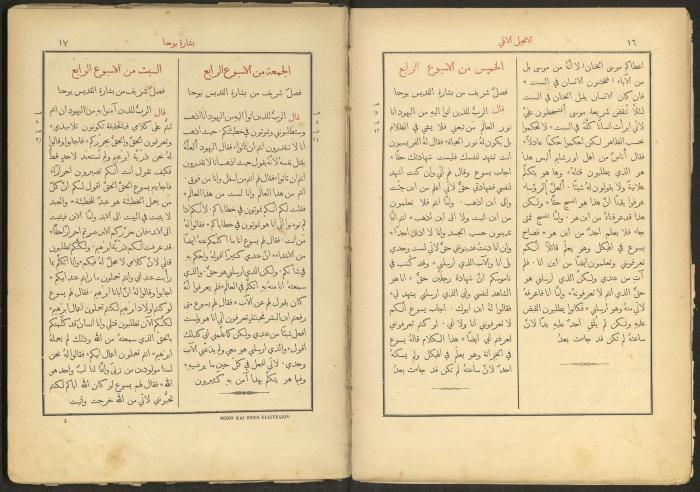 ١٦
الانجيل الالهي
اعطاكم موسى الختان لا انهُ من موسى بل
من الآباء فتختنون الانسان في السبت
فان كان الانسان يقبل الختان في السبت
لئلَّا تُنقض شريعة موسى أفتسخطون عليَّ
لاني ابرأت انسانًا كلَّهُ في السبت لا تحكموا
بحسب الظاهر لكن احكموا حكمًا عادلًا
فقال أُناسٌ من اهل اورشليم أليس هذا
هو الذي يطلبون قتلهُ وها هو يتكلَّم
علانيةً ولا يقولون لهُ شيئًا
عرفوا يقينًا انَّ هذا هو المسيح حقًّا ولكن
هذا قد عرفناهُ من اين هو وامَّا المسيح فمتى
جاءَ فلا يعلم احدٌ من اين هو فصاح
يسوع في الهيكل وهو يعلّم قائلًا انَّكم
تعرفوني وتعلمون ايضًا من اين انا فلم
آتِ من عندي ولكنَّ الذي ارسلني هو
حقٌّ الذي انتم لا تعرفونهُ وامَّا انا فاعرفهُ
لاني منهُ وهو ارسلني فكانوا يطلبون القبض
عليهِ ولكن لم يُلقِ احدٌ عليهِ يدًا لانَّ
ساعتهُ لم تكن قد جاءت بعدُ
الخميس من الاسبوع الرابع
فصلٌ شريف من بشارة القديس يوحنا
قال الربُّ للذين اتوا اليهِ من اليهود انا
نور العالم من تبعني فلا يمشي في الظلام
بل يكون لهُ نور الحياة فقال لهُ الفريسيون
انت تشهد لنفسك فليست شهادتك حقًّا
اجاب يسوع وقال لهم اني وإن كنت اشهد
لنفسي فشهادتي حقٌّ لاني اعلم من اين جئت
والى اين اذهب وامَّا انتم فلا تعلمون
من اين اتيت ولا الى اين اذهب انتم انَّما
تدينون حسب الجسد وانا لا ادين احدًا
وإن انا دِنتُ فدينونتي حقٌّ لاني لست وحدي
بل انا والآب الذي ارسلني وقد كُتب في
ناموسكم انَّ شهادة رجلين حقٌّ انا هو
الشاهد لنفسي وابي الذي ارسلني يشهد لي
فقالوا لهُ اين ابوك اجاب يسوع انَّكم
لا تعرفونني انا ولا ابي لو كنتم تعرفوني
لعرفتم ابي ايضًا هذا الكلام قالهُ يسوع
في الخزانة وهو يعلّم في الهيكل ولم يمسكهُ
احدٌ لانَّ ساعتهُ لم تكن قد جاءت بعدُ
بشارة يوحنا
١٧
الجمعة من الاسبوع الرابع
فصلٌ شريف من بشارة القديس يوحنا
قال الربُّ للذين اتوا اليهِ من اليهود انا اذهب
وستطلبونني وتموتون في خطيئتكم حيث اذهب
انا لا تقدرون انتم ان تأتوا فقال اليهود ألعلَّهُ
يقتل نفسهُ لانهُ يقول حيث اذهب انا لا تقدرون
انتم ان تأتوا فقال لهم انتم من اسفل وانا من فوق
انتم من هذا العالم وانا لست من هذا العالم
فقلت لكم انَّكم تموتون في خطاياكم لانَّكم اذا
لم تؤمنوا اني انا هو تموتون في خطاياكم فقالوا لهُ
من انت فقال لهم يسوع انا ما اكلّمكم بهِ ايضًا
من الابتداء انَّ عندي كثيرًا اقولهُ واحكم بهِ
في شأنكم ولكنَّ الذي ارسلني هو حقٌّ والذي
سمعتهُ انا منهُ بهِ اتكلَّم في العالم فلم يعرفوا انهُ
كان يقول لهم عن الآب فقال لهم يسوع متى
رفعتم ابن البشر فحينئذٍ تعرفون اني انا هو ولست
افعل شيئًا من عندي ولكن كما علَّمني ابي كذلك
اقول والذي ارسلني هو معي ولم يدعني الآب
وحدي لاني افعل في كل حين ما يرضيهِ
وفيما هو يتكلَّم بهذا آمن بهِ كثيرون
السبت من الاسبوع الرابع
فصلٌ شريف من بشارة القديس يوحنا
قال الربُّ للذين آمنوا بهِ من اليهود ان انتم
ثبتُّم على كلامي فبالحقيقة تكونون تلاميذي
وتعرفون الحقَّ والحقُّ يحرّركم فاجابوا وقالوا
لهُ نحن ذرّية ابرهيم ولم نُستعبد لاحدٍ قطُّ
فكيف تقول انت انَّكم تصيرون احرارًا
فاجابهم يسوع الحقَّ الحقَّ اقول لكم انَّ كلَّ
من يعمل الخطيئة هو عبدٌ للخطيئة والعبد
لا يثبت في البيت الى الابد وامَّا الابن فيثبت
الى الابد فان حرَّركم الابن صرتم احرارًا حقًّا
قد عرفت انَّكم ذرّية ابرهيم ولكنَّكم تطلبون
قتلي لانَّ كلامي لا محلَّ لهُ فيكم وانا اتكلَّم بما
رأيت عند ابي وانتم تعملون ما رأيتم عند ابيكم
اجابوا وقالوا لهُ انَّ ابانا ابرهيم فقال لهم يسوع
لو كنتم اولاد ابرهيم لكنتم تعملون اعمال ابرهيم
لكنَّكم الآن تطلبون قتلي وانا انسانٌ قد كلَّمتكم
بالحقّ الذي سمعتهُ من الله وذلك لم يعملهُ
ابرهيم انتم تعملون اعمال ابيكم فقالوا لهُ نحن
لسنا مولودين من زنًى وانَّما لنا ابٌ واحدٌ هو
الله فقال لهم يسوع لو كان الله اباكم لكنتم
تحبّوني لاني من الله خرجت واتيت
ΘΕΙΟΝ ΚΑΙ ΙΕΡΟΝ ΕΥΑΓΓΕΛΙΟΝ
3